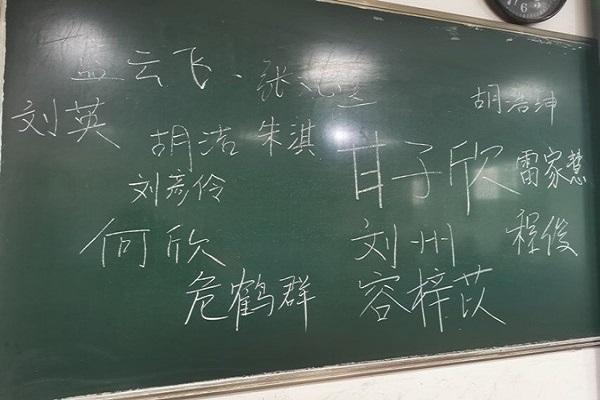 云飞
张
胡浩坤
刘英
胡洁
朱淇
甘子欣
雷家慧
刘彦伶
何欣
刘州
程俊
危鹤群
容梓苡
6
5